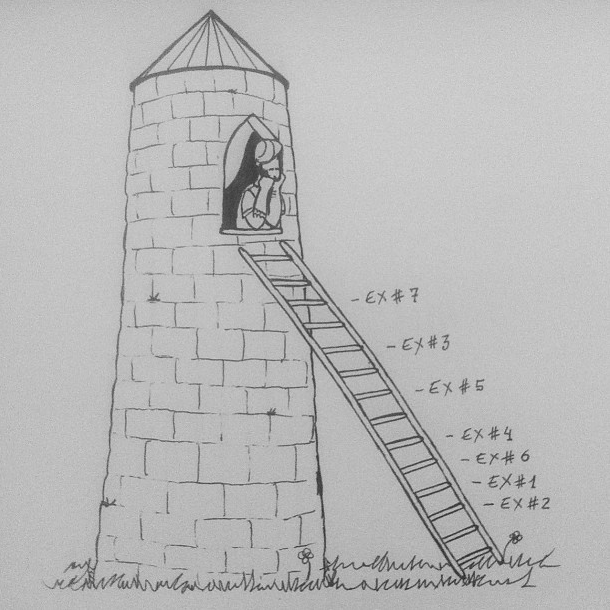 - EX # 7
- EX #3
- EX # 5
- EX #4
- EX # 6
- EX #1
- EX #2